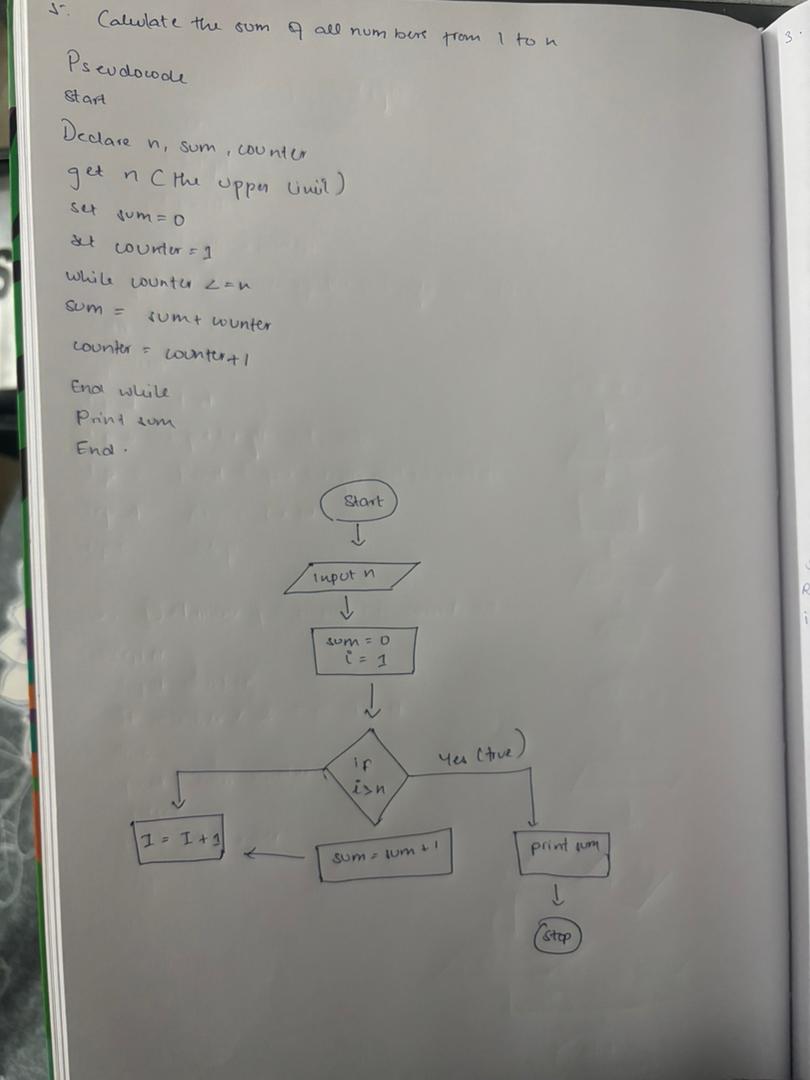 5. Calculate the sum of all numbers from 1 to n
Pseudocode
Start
Declare n, sum, counter
get n (the upper limit)
set sum = 0
set counter = 1
while counter <= n
sum = sum + counter
counter = counter + 1
End while
Print sum
End.
Start
input n
sum = 0
i = 1
if
i>n
Yes (true)
I = I + 1
sum = sum + 1
print sum
Stop
3.